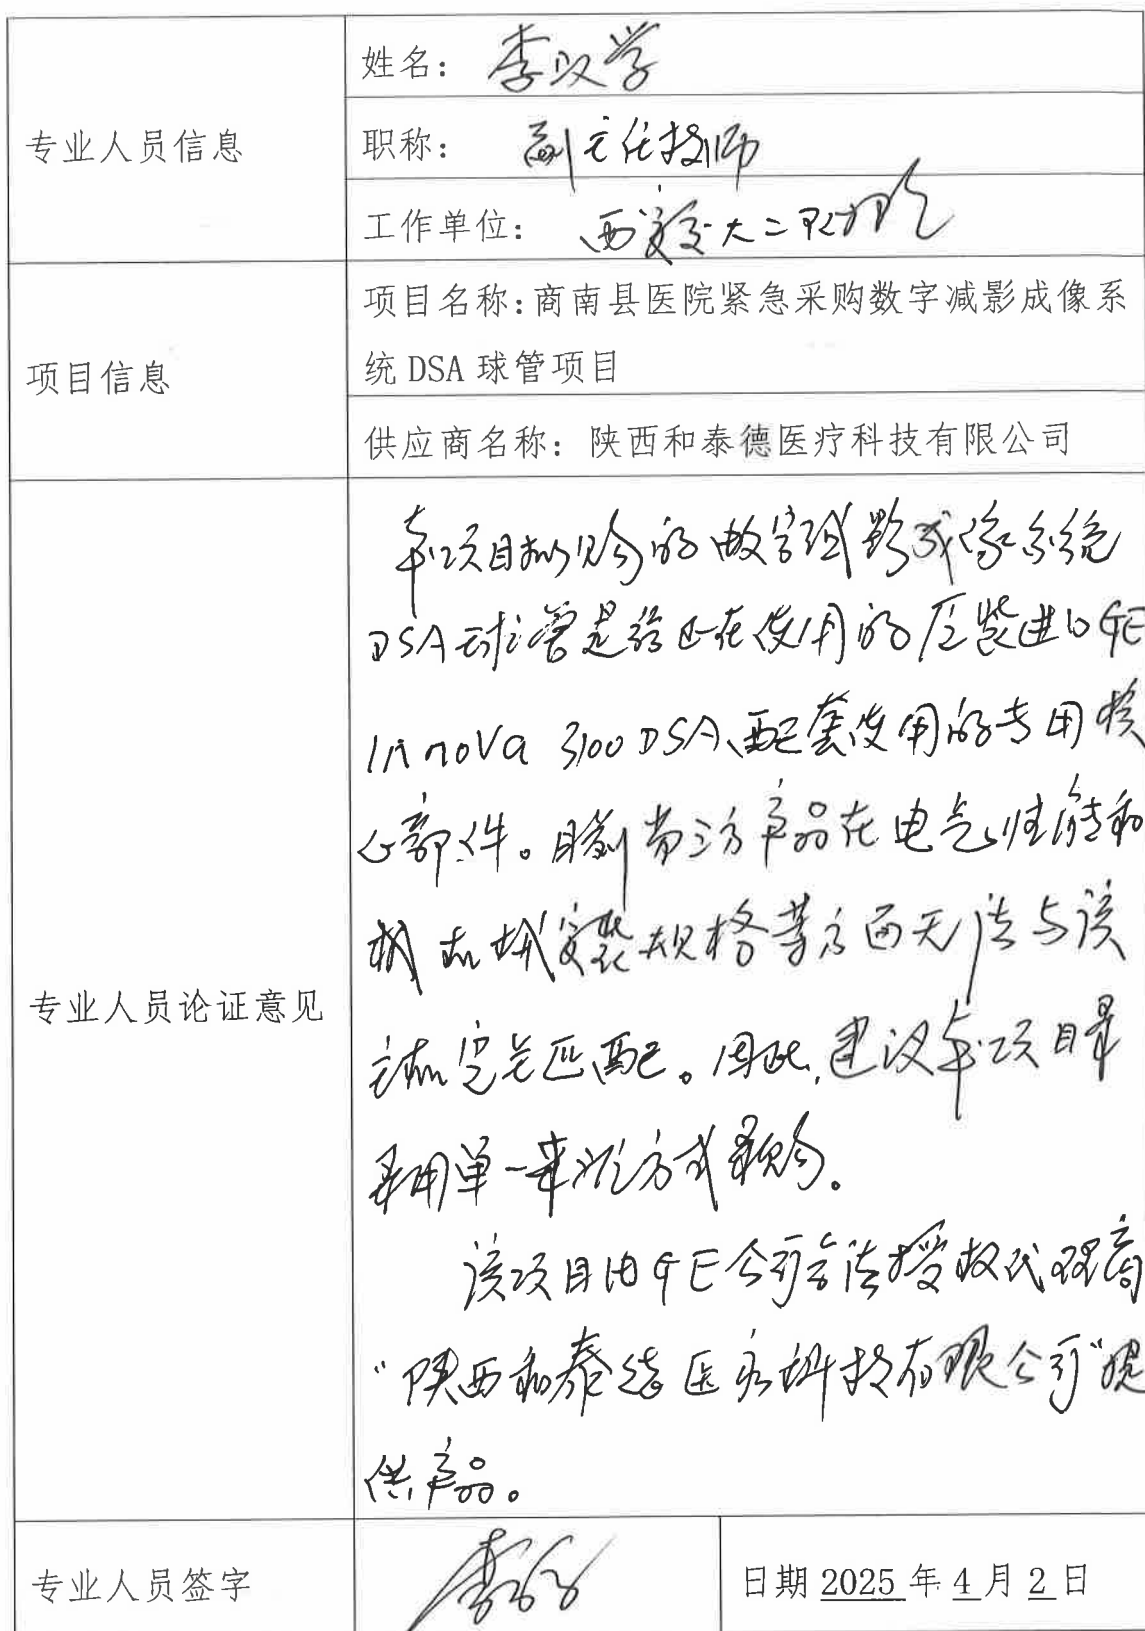 专业人员信息
姓名：李政学
职称：副主任技师
工作单位：西安交大二附院
项目信息
项目名称:商南县医院紧急采购数字减影成像系
统 DSA 球管项目
供应商名称：陕西和泰德医疗科技有限公司
专业人员论证意见
本项目拟购的数字减影成像系统
DSA球管是给正在使用的原装进口GE
Innova 3100 DSA、配套使用的专用核
心部件。目前第三方产品在电气性能和
机械安装规格等方面无法与该
主机完美匹配。因此,建议本项目
采用单一来源方式采购。
该项目由GE公司合法授权代理商
“陕西和泰德医疗科技有限公司”提
供产品。
专业人员签字
日期 2025 年 4 月 2 日